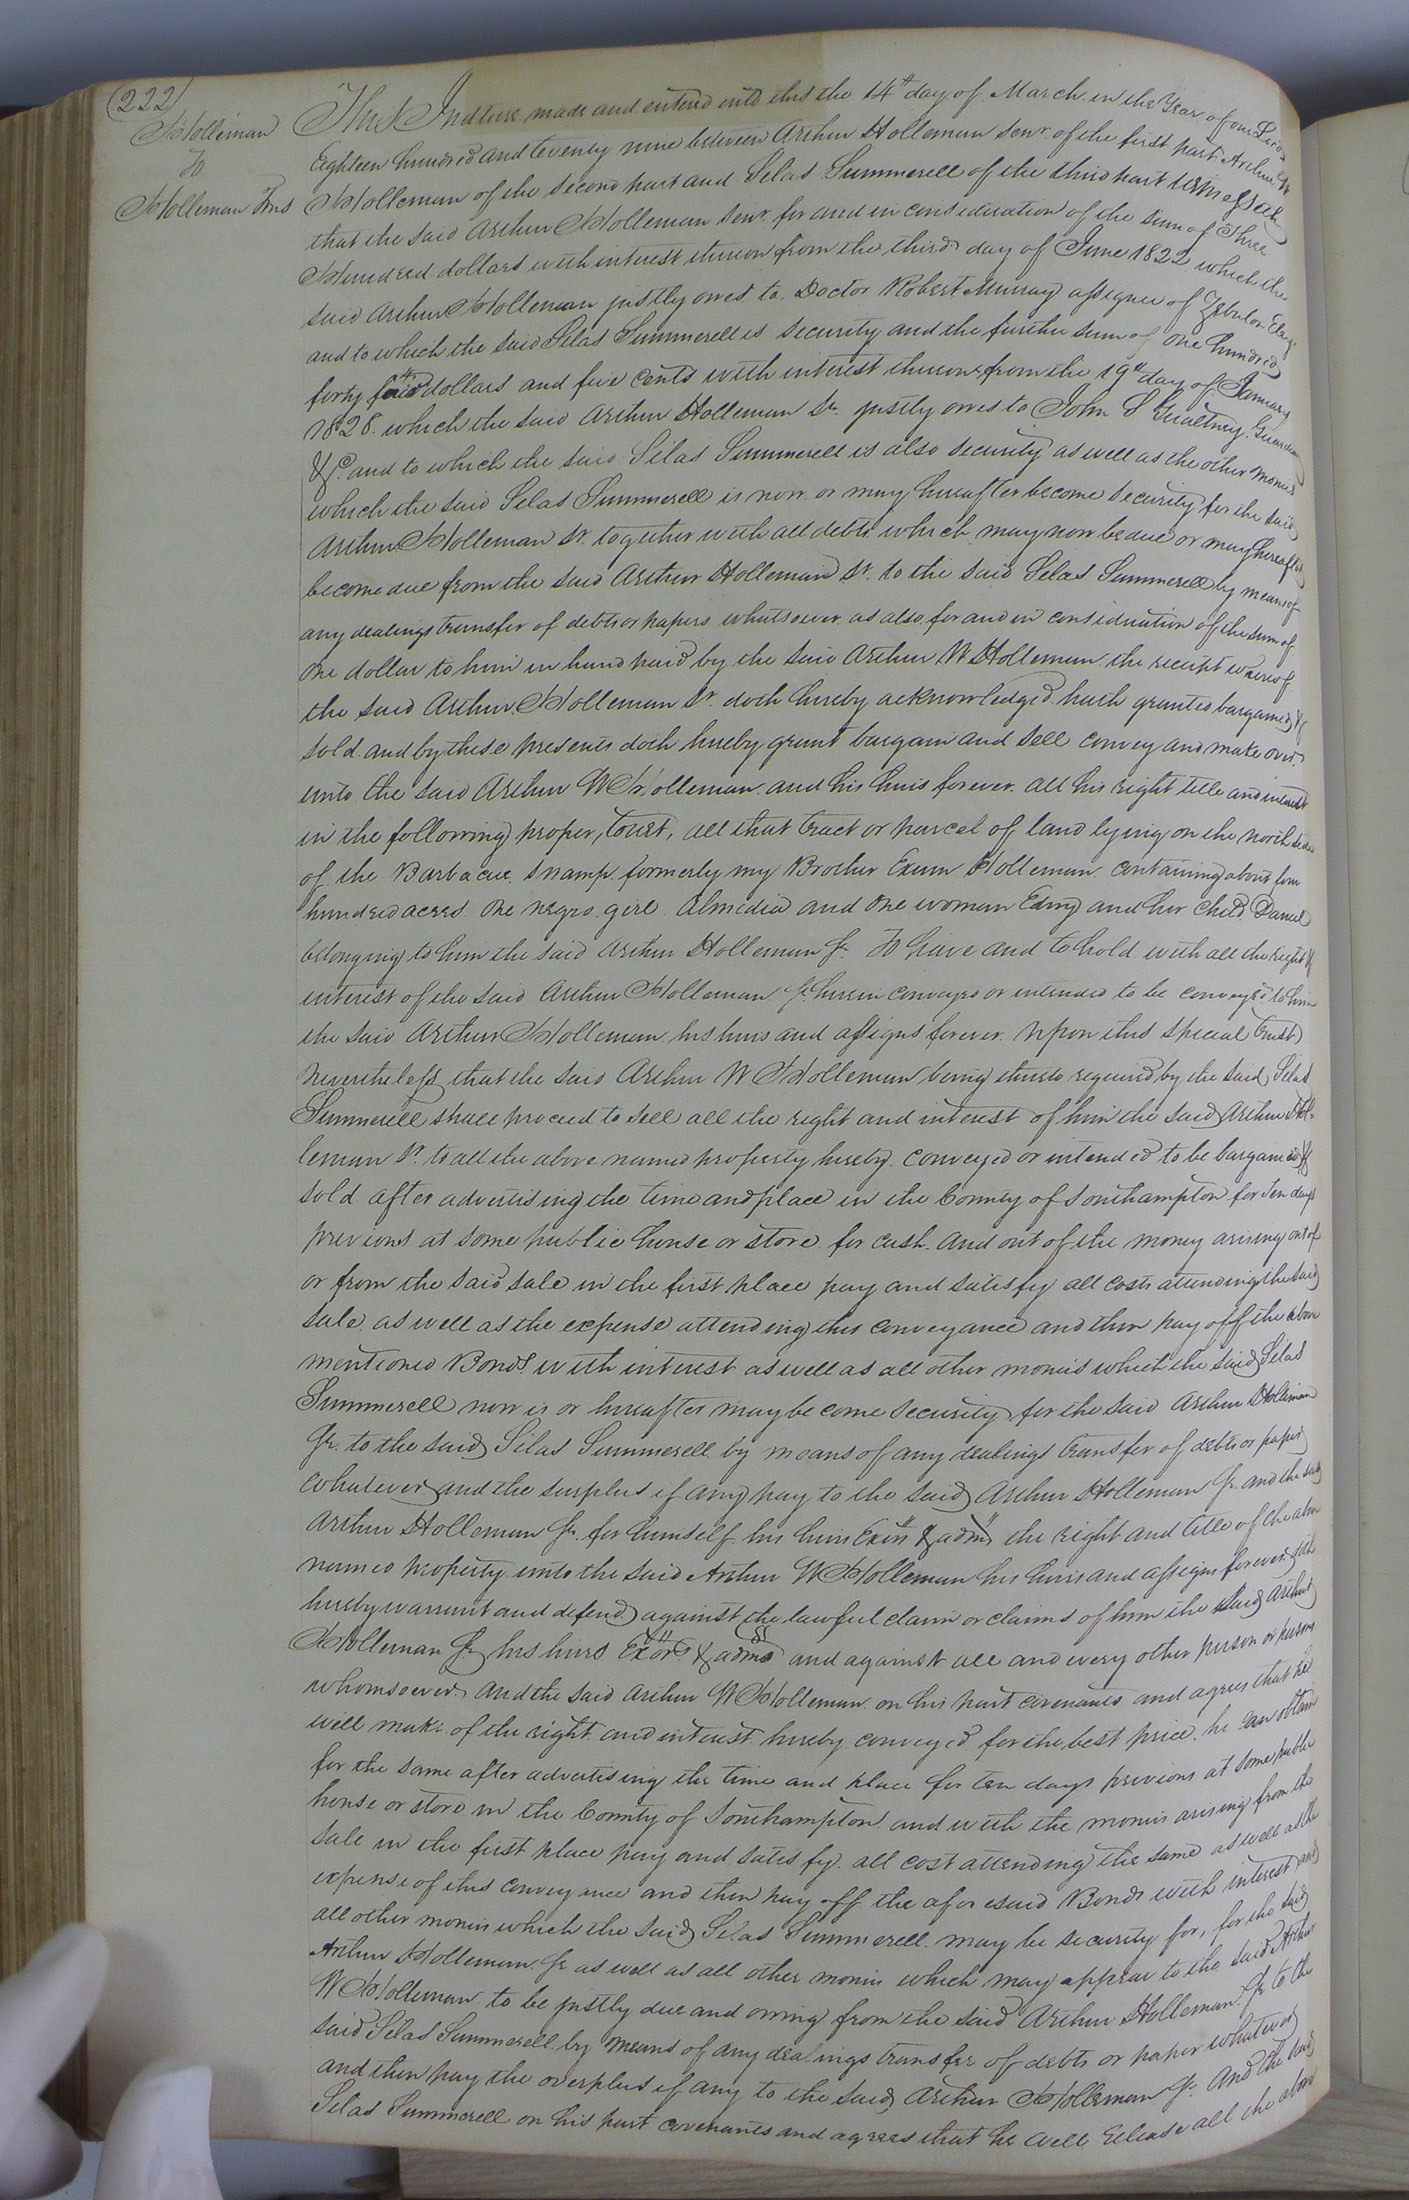 (222)
Holleman
to
Holleman Trus
This Indture made and entered into this the 14th day of March in the Year of our Lord
Eighteen hundred and twenty nine between Arthur Holleman Senr. of the first part Arthur W
Holleman of the second part and Silas Summerell of the third part witnesseth
that the said Arthur Holleman Senr. for and in consideration of the sum of Three
Hundred dollars with interest thereon from the third day of June 1822 which the
said Arthur Holleman justly owes to Doctor Robert Murray assignee of
and to which the said Silas Summerell is security and the further sum of One hundred
forty dollars and five cents with interest thereon from the 19th day of January
1828. which the said Arthur Holleman Sr. justly owes to John S Gwaltney Guardian
&c. and to which the said Silas Summerell is also security as well as the other monies
which the said Silas Summerell is now or may hereafter become security for the said
Arthur Holleman Sr. together with all debts which may now be due or may hereafter
become due from the said Arthur Holleman Sr. to the said Silas Summerell by means of
any dealings transfer of debts or papers whatsoever as also for and in consideration of the sum of
One dollar to him in hand paid by the said Arthur W Holleman the receipt whereof
the said Arthur Holleman Sr. doth hereby acknowledged hath granted bargained &
sold and by these presents doth hereby grant bargain and sell convey and make over
unto the said Arthur W Holleman and his heirs forever all his right title and interest
in the following property, to wit, all that tract or parcel of land lying on the north side
of the Barbacue Swamp formerly my Brother Exum Holleman containing about four
hundred acres. One negro girl Almedia and One woman Edny and her child Daniel
belonging to him the said Arthur Holleman Jr. To have and to hold with all the right &
interest of the said Arthur Holleman Jr. herein conveyed or intended to be conveyed to him
the said Arthur Holleman his heirs and assigns forever. Upon this special trust
nevertheless that the said Arthur W Holleman being thereto required by the said Silas
Summerell shall proceed to sell all the right and interest of him the said Arthur Hol-
leman Sr. to all the above named property hereby conveyed or intended to be bargained &
sold after advertising the time and place in the County of Southampton for Ten days
previous at some public house or store for cash. And out of the money arising out of
or from the said sale in the first place pay and satisfy all costs attending the said
sale as well as the expense attending this conveyance and then pay off the above
mentioned Bonds with interest as well as all other monies which the said Silas
Summerell now is or hereafter may become security for the said Arthur Holleman
Jr. to the said Silas Summerell by means of any dealings transfer of debts or paper
whatever and the surplus if any pay to the said Arthur Holleman Jr. and the said
Arthur Holleman Jr. for himself his heirs Exors & adms the right and title of the above
named property unto the said Arthur W Holleman his heirs and assigns forever doth
hereby warrant and defend against the lawful claim or claims of him the said Arthur
Holleman Jr his heirs Exors & adms and against all and every other person or persons
whomsoever. And the said Arthur W Holleman on his part covenants and agrees that he
will make of the right and interest hereby conveyed for the best price he can obtain
for the same after advertising the time and place for ten days previous at some public
house or store in the County of Southampton and with the monies arising from the
sale in the first place pay and satisfy all cost attending the same as well as the
expense of this conveyance and then pay off the aforesaid Bonds with interest and
all other monies which the said Silas Summerell may be security for, for the said
Arthur Holleman Jr as well as all other monies which may appear to the said Arthur
W Holleman to be justly due and owing from the said Arthur Holleman Jr to the
said Silas Summerell by means of any dealings transfer of debts or paper whatever
and then pay the overplus if any to the said Arthur Holleman Jr. And the said
Silas Summerell on his part covenants and agrees that he will release all the above